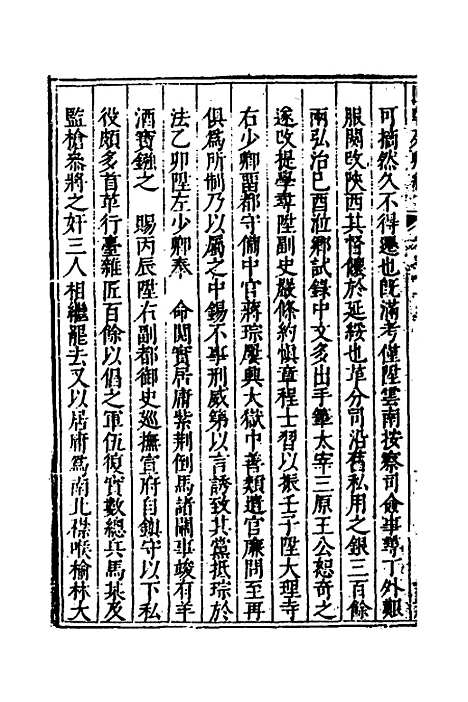 可摘然久不得遷也旣滿考僅陞雲南按察司僉事尋丁外艱
服闋改陝西其督儲於延綏也革分司沿舊私用之銀三百餘
兩弘治己酉涖鄉試錄中文多出手筆太宰三原王公恕奇之
遂改提學尋陞副史嚴條約愼章程士習以振壬子陞大理寺
右少卿留都守備中官蔣琮屢興大獄中善類遣官廉問至再
俱爲所制乃以屬之中錫不事刑威第以言誘致其黨抵琮於
法乙卯陞左少卿奉 命閱實居庸紫荆倒馬諸關事竣有羊
酒寶鏹之 賜丙辰陞右副都御史巡撫宣府自鎮守以下私
役頗多首革行臺雜匠百餘以倡之軍伍復實數總兵馬某及
監槍叅將之奸三人相繼罷去又以居庸爲南北襟喉榆林大